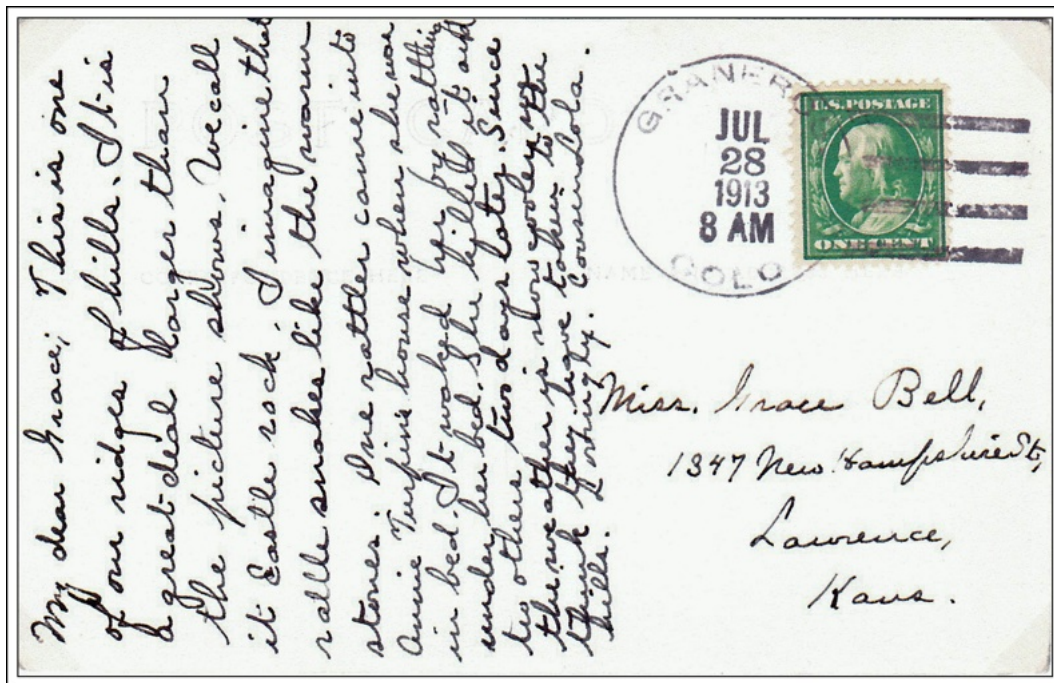 My dear Grace; This is one
of our ridges of hills. It is
a great deal larger than
the picture shows. We call
it Castle rock. I imagine that
ralle snakes like the warm
stones. One rattler came into
Annie Turpin's house when she was
in bed. It waked her by rattling
under her bed. She killed it and
two others two days later. Since
the weather is now cooler we
think they have taken to the
hills. Lovingly. Cousin Lola.
GRANERO
COLO
JUL
28
1913
8 AM
U.S. POSTAGE
ONE CENT
POST CARD
Miss. Grace Bell,
1347 New Hampshire St,
Lawrence,
Kans.